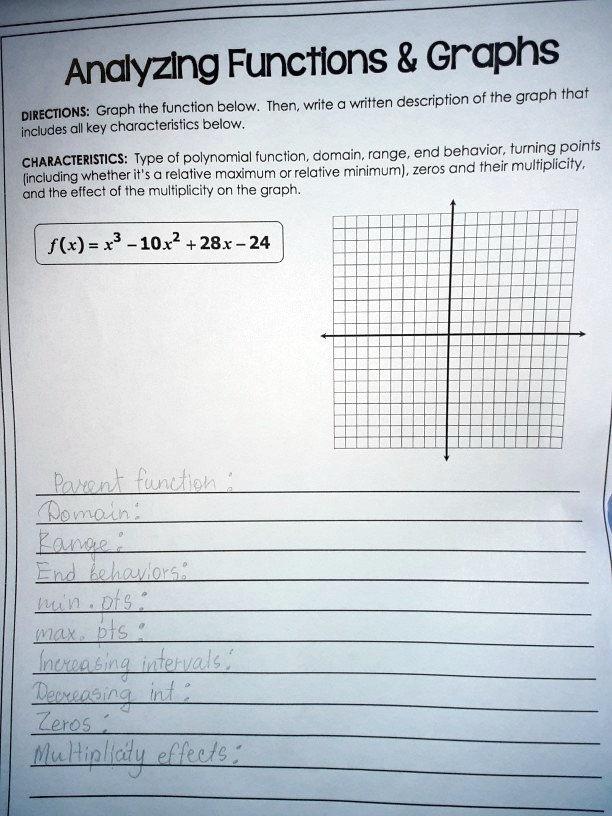 Analyzing Functions & Graphs
DIRECTIONS: Graph the function below. Then, write a written description of the graph that
includes all key characteristics below.
CHARACTERISTICS: Type of polynomial function, domain, range, end behavior, turning points
(including whether it's a relative maximum or relative minimum), zeros and their multiplicity,
and the effect of the multiplicity on the graph.
f(x) = x³ – 10x² + 28x – 24
Parent function :
Domain:
Range :
End behaviors:
min . pts :
max. pts :
Increasing intervals:
Decreasing int :
Zeros :
Multiplicity effects :